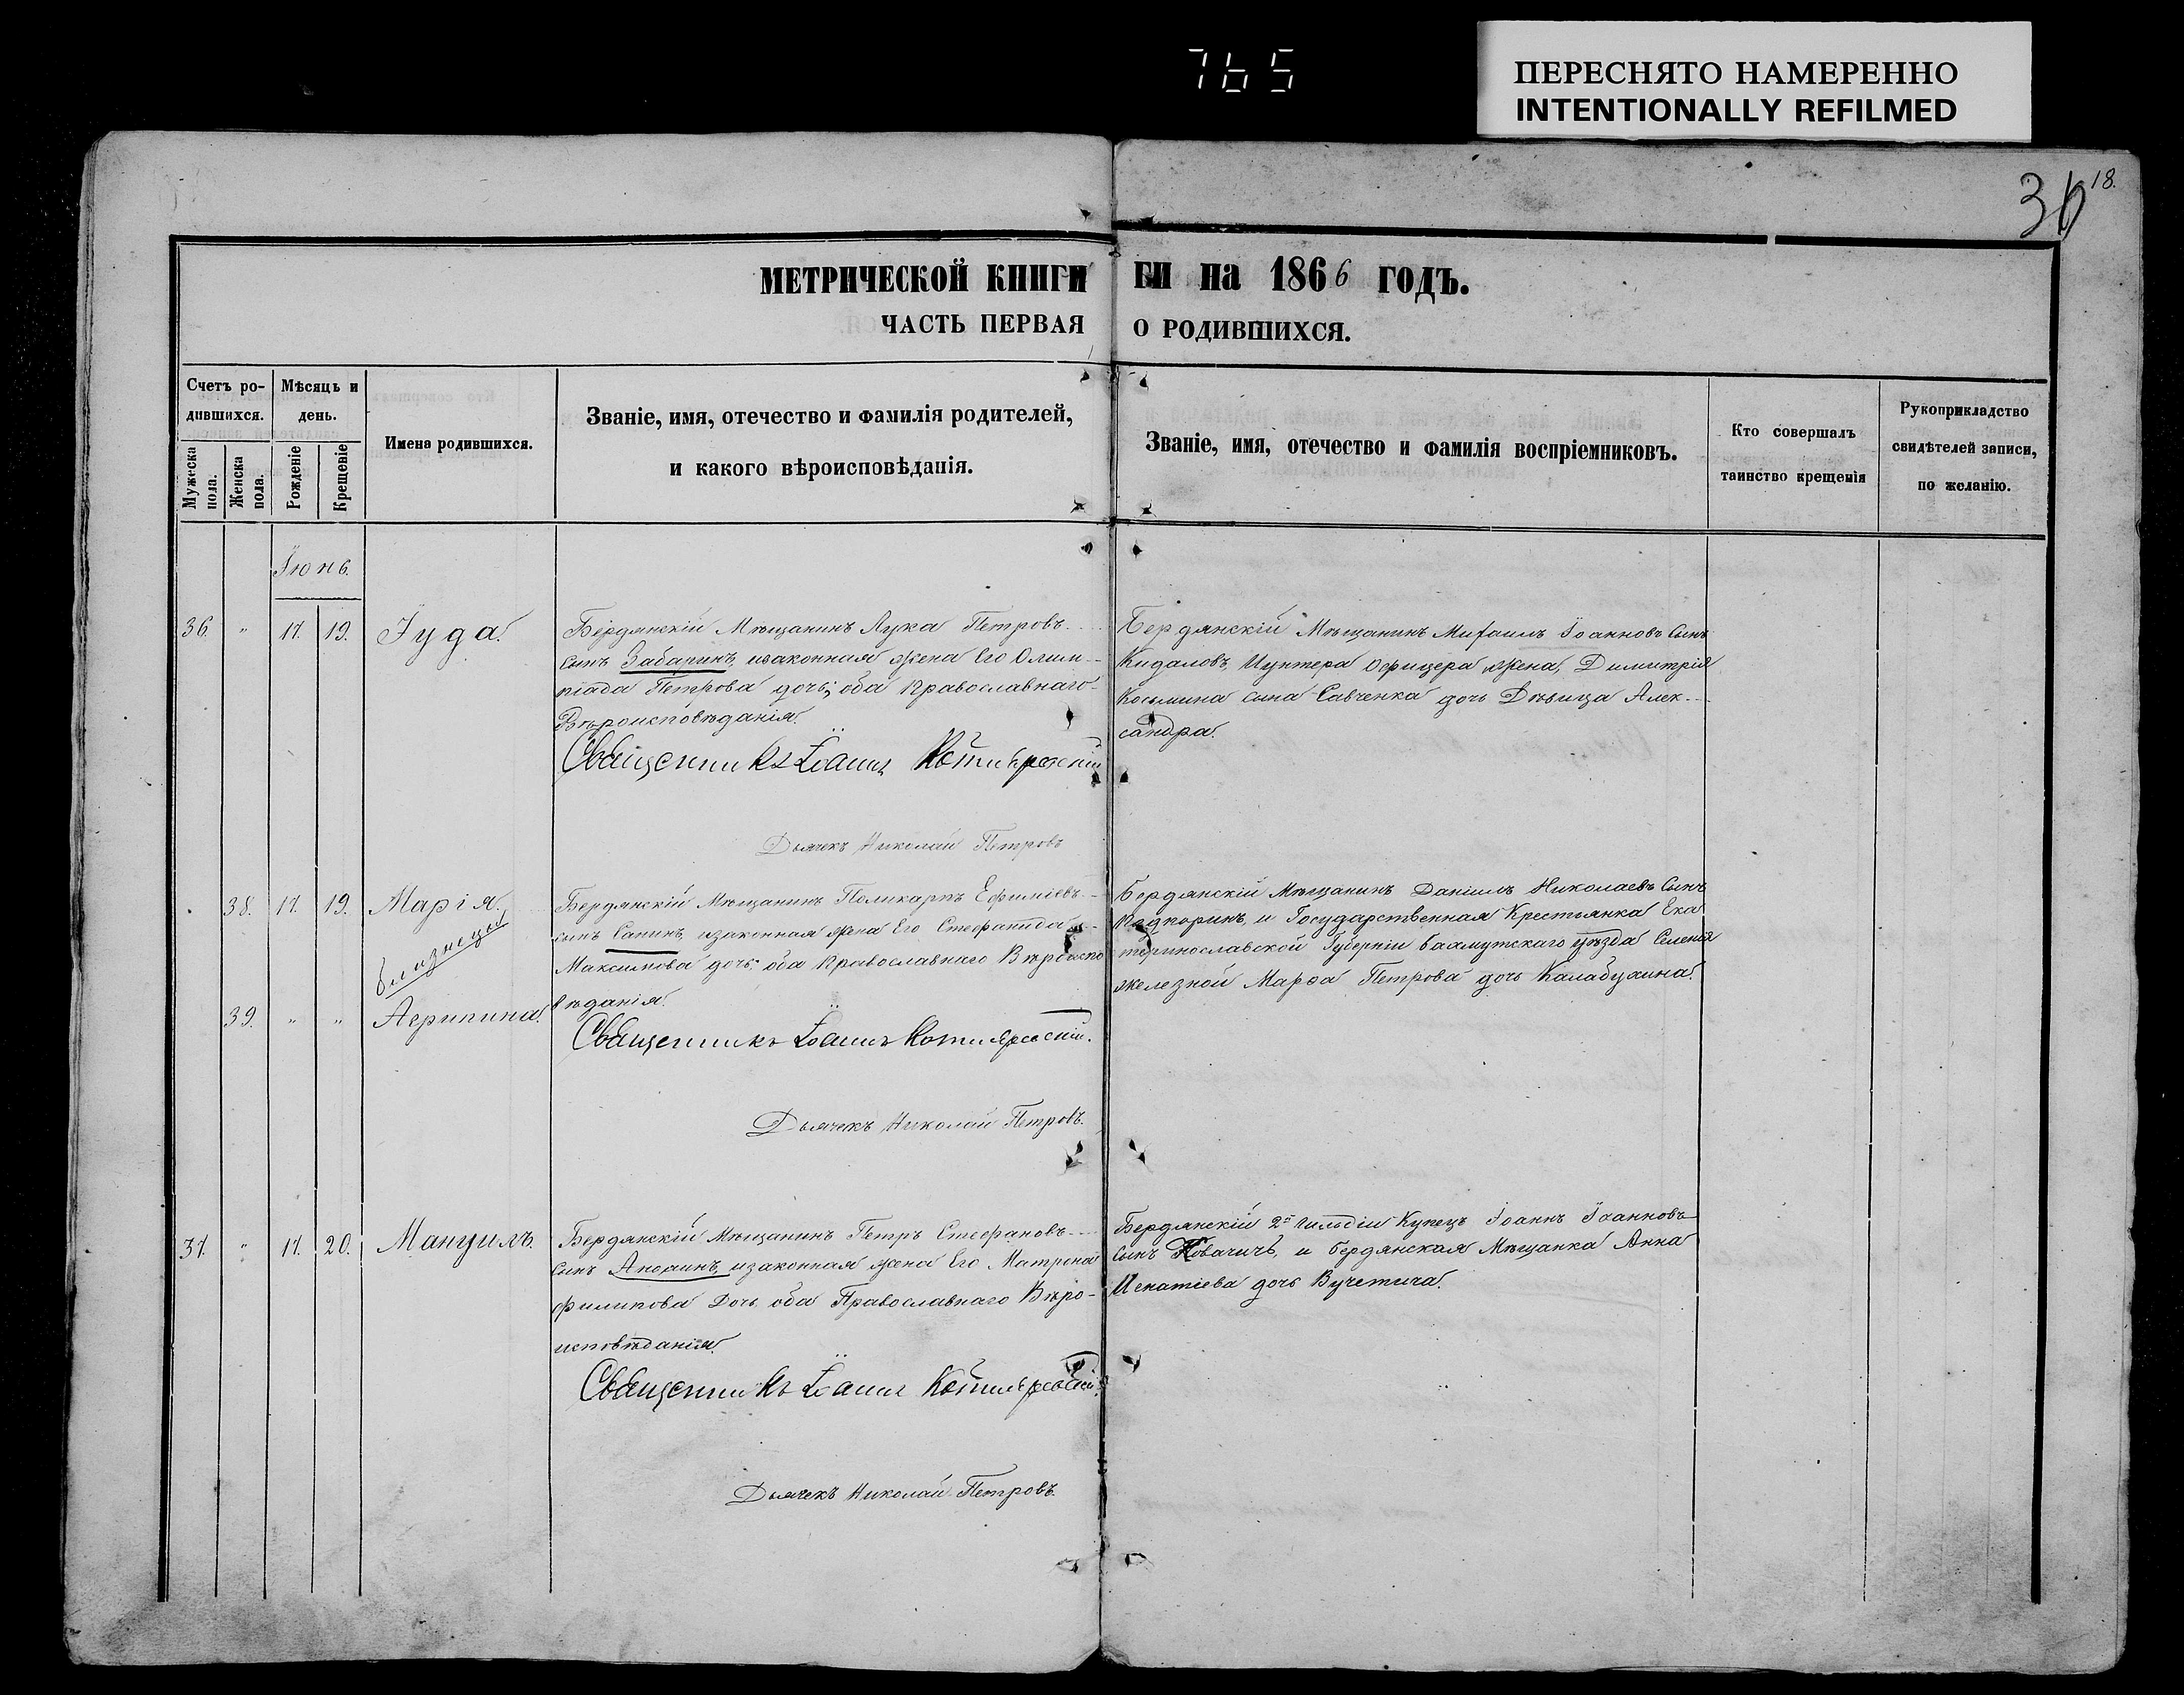 765
ПЕРЕСНЯТО НАМЕРЕННО
INTENTIONALLY REFILMED
36 18.
МЕТРИЧЕСКОЙ КНИГИ ГИ на 1866 ГОДЪ.
ЧАСТЬ ПЕРВАЯ О РОДИВШИХСЯ.
Счетъ ро-
дившихся.
Мужеска пола.
Женска пола.
Мѣсяцъ и
день.
Рожденіе
Крещеніе
Имена родившихся.
Званіе, имя, отечество и фамилія родителей,
и какого вѣроисповѣданія.
Званіе, имя, отечество и фамилія воспріемниковъ.
Кто совершалъ
таинство крещенія
Рукоприкладство
свидѣтелей записи,
по желанію.
Іюнь.
36. " 17. 19. Іуда.
Бердянскій Мѣщанинъ Лука Петровъ
сынъ Забаринъ, изаконная жена Его Олим-
піада Петрова дочь; оба Православнаго
Вѣроисповѣданія.
Священникъ Іоаннъ Котляревскій
Дьячекъ Николай Петровъ
Бердянскій Мѣщанинъ Михаилъ Іоанновъ Сынъ
Кидаловъ, Иунтера Офицера жена, Димитрія
Косьмина сына Савченка дочь Дѣвица Алек-
сандра.
38. 17. 19. Марія.
близнецы
39. " " Агрипина.
Бердянскій Мѣщанинъ Поликарпъ Ефиміевъ
сынъ Сапинъ, изаконная жена Его Стефанида
Максимова дочь; оба Православнаго Вѣроиспо
вѣданія.
Священникъ Іоаннъ Котляревскій.
Дьячекъ Николай Петровъ.
Бердянскій Мѣщанинъ Даніилъ Николаевъ Сынъ
и Государственная Крестьянка Ека
теринославской Губерніи Бахмутскаго уѣзда Селенія
железной Марѳа Петрова дочь Калабухина.
37. " 17. 20. Мануилъ.
Бердянскій Мѣщанинъ Петръ Стефановъ
сынъ изаконная жена Его Матрона
Филипова Дочь оба Православнаго Вѣро-
исповѣданія.
Священникъ Іоаннъ Котляревскій.
Дьячекъ Николай Петровъ.
Бердянскій 2й гильдіи Купецъ Іоаннъ Іоанновъ
сынъ Ковачичъ, и Бердянская Мѣщанка Анна
Игнатіева дочь Вучетича.